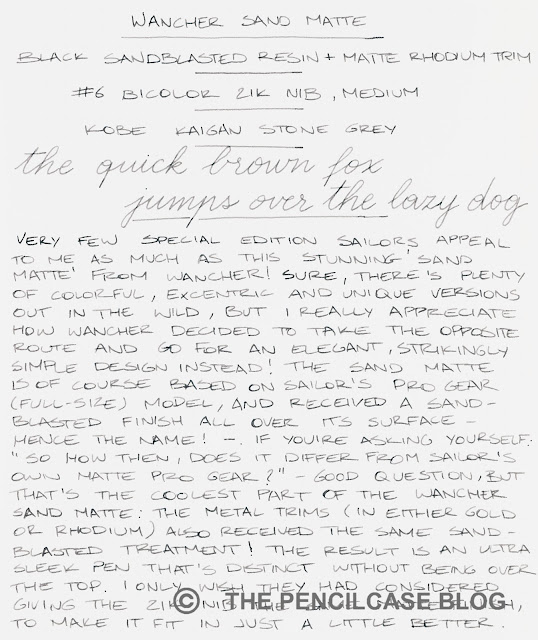 WANCHER SAND MATTE
BLACK SANDBLASTED RESIN + MATTE RHODIUM TRIM
#6 BICOLOR 21K NIB, MEDIUM
KOBE KAIGAN STONE GREY
the quick brown fox
jumps over the lazy dog
VERY FEW SPECIAL EDITION SAILORS APPEAL
TO ME AS MUCH AS THIS STUNNING 'SAND
MATTE' FROM WANCHER! SURE, THERE'S PLENTY
OF COLORFUL, EXCENTRIC AND UNIQUE VERSIONS
OUT IN THE WILD, BUT I REALLY APPRECIATE
HOW WANCHER DECIDED TO TAKE THE OPPOSITE
ROUTE AND GO FOR AN ELEGANT, STRIKINGLY
SIMPLE DESIGN INSTEAD! THE SAND MATTE
IS OF COURSE BASED ON SAILOR'S PRO GEAR
(FULL-SIZE) MODEL, AND RECEIVED A SAND-
BLASTED FINISH ALL OVER ITS SURFACE -
HENCE THE NAME! -. IF YOU'RE ASKING YOURSELF:
"SO HOW THEN, DOES IT DIFFER FROM SAILOR'S
OWN MATTE PRO GEAR?" - GOOD QUESTION, BUT
THAT'S THE COOLEST PART OF THE WANCHER
SAND MATTE: THE METAL TRIMS (IN EITHER GOLD
OR RHODIUM) ALSO RECEIVED THE SAME SAND-
BLASTED TREATMENT! THE RESULT IS AN ULTRA
SLEEK PEN THAT'S DISTINCT WITHOUT BEING OVER
THE TOP. I ONLY WISH THEY HAD CONSIDERED
GIVING THE 21K NIB THE
TO MAKE IT FIT IN JUST A LITTLE BETTER.
© THE PENCILCASE BLOG